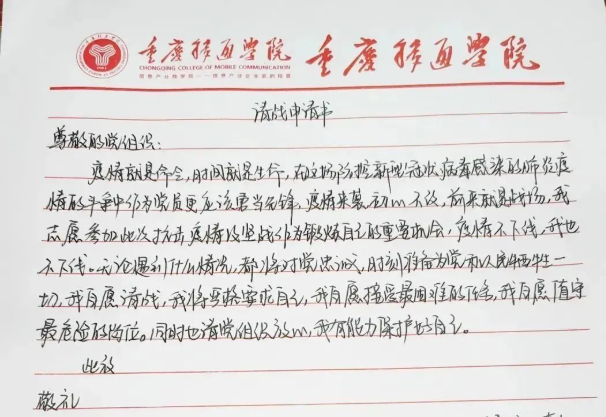 重庆移通学院 重庆移通学院
CHONGQING COLLEGE OF MOBILE COMMUNICATION
请战申请书
尊敬的党组织：
疫情就是命令，时间就是生命，在这场防控新型冠状病毒感染的肺炎疫
情的斗争中作为党员更应该勇当先锋，疫情来袭初心不改，前来就是战场，我
志愿参加此次抗击疫情攻坚战作为锻炼自己的重要机会，疫情不下线，我也
不下线。无论遇到什么情况，都将对党忠诚，时刻准备为党和人民牺牲一
切，我自愿请战，我将严格要求自己，我自愿接受最困难的任务，我自愿值守
最危险的岗位。同时也请党组织放心，我有能力保护好自己。
此致
敬礼